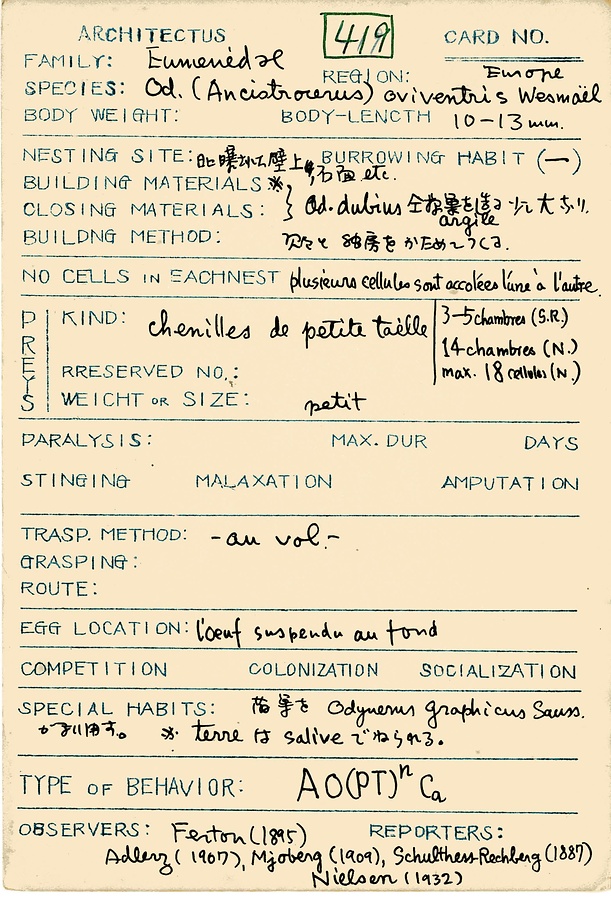 ARCHITECTUS 419 CARD NO.
FAMILY: Eumenédæ REGION: Europe
SPECIES: Od. (Ancistrocerus) oviventris Wesmaël
BODY WEIGHT: BODY-LENGTH 10-13 mm.
NESTING SITE: 日に曝された壁上や石面 etc. BURROWING HABIT (—)
BUILDING MATERIALS ※
CLOSING MATERIALS: } Od. dubius 全な巣を造る 少し大きい.
argile
BUILDNG METHOD: 次々と 蜂房をかためてつくる.
NO CELLS IN EACHNEST plusieurs cellules sont accolées l'une à l'autre.
PREYS KIND: chenilles de petite taëlle
3-5 chambres (S.R.)
14 chambres (N.)
max. 18 cellules (N.)
RRESERVED NO.:
WEICHT OR SIZE: petit
PARALYSIS: MAX. DUR DAYS
STINGING MALAXATION AMPUTATION
TRASP. METHOD: -au vol.-
GRASPING:
ROUTE:
EGG LOCATION: l'oeuf suspendu au fond
COMPETITION COLONIZATION SOCIALIZATION
SPECIAL HABITS: 旧巣を Odynerus graphicus Sauss.
が利用す。 ※ terre は salive でねられる.
TYPE OF BEHAVIOR: AO(PT)ⁿ Ca
OBSERVERS: Ferton (1895) REPORTERS:
Adlerz (1907), Mjöberg (1909), Schulthess-Rechberg (1887)
Nielsen (1932)